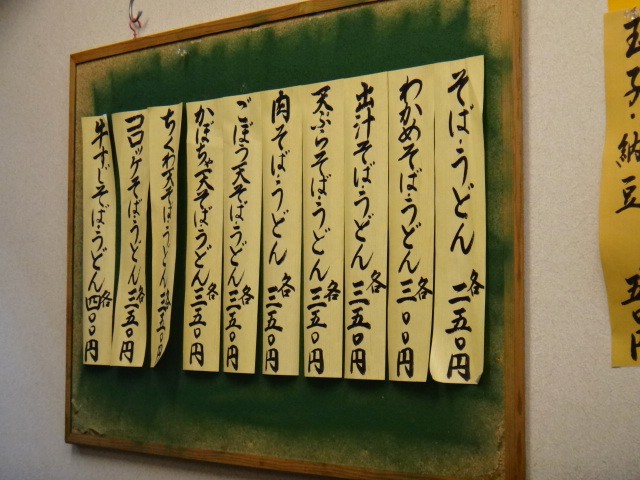 玉子・納豆 五〇円
そば・うどん 各二五〇円
わかめそば・うどん 各三〇〇円
出汁そば・うどん 各三五〇円
天ぷらそば・うどん 各三五〇円
肉そば・うどん 各三五〇円
ごぼう天そば・うどん 各三五〇円
かぼちゃ天そば・うどん 各三五〇円
ちくわ天そば・うどん 各三五〇円
コロッケそば・うどん 各三五〇円
牛すじそば・うどん 各四〇〇円